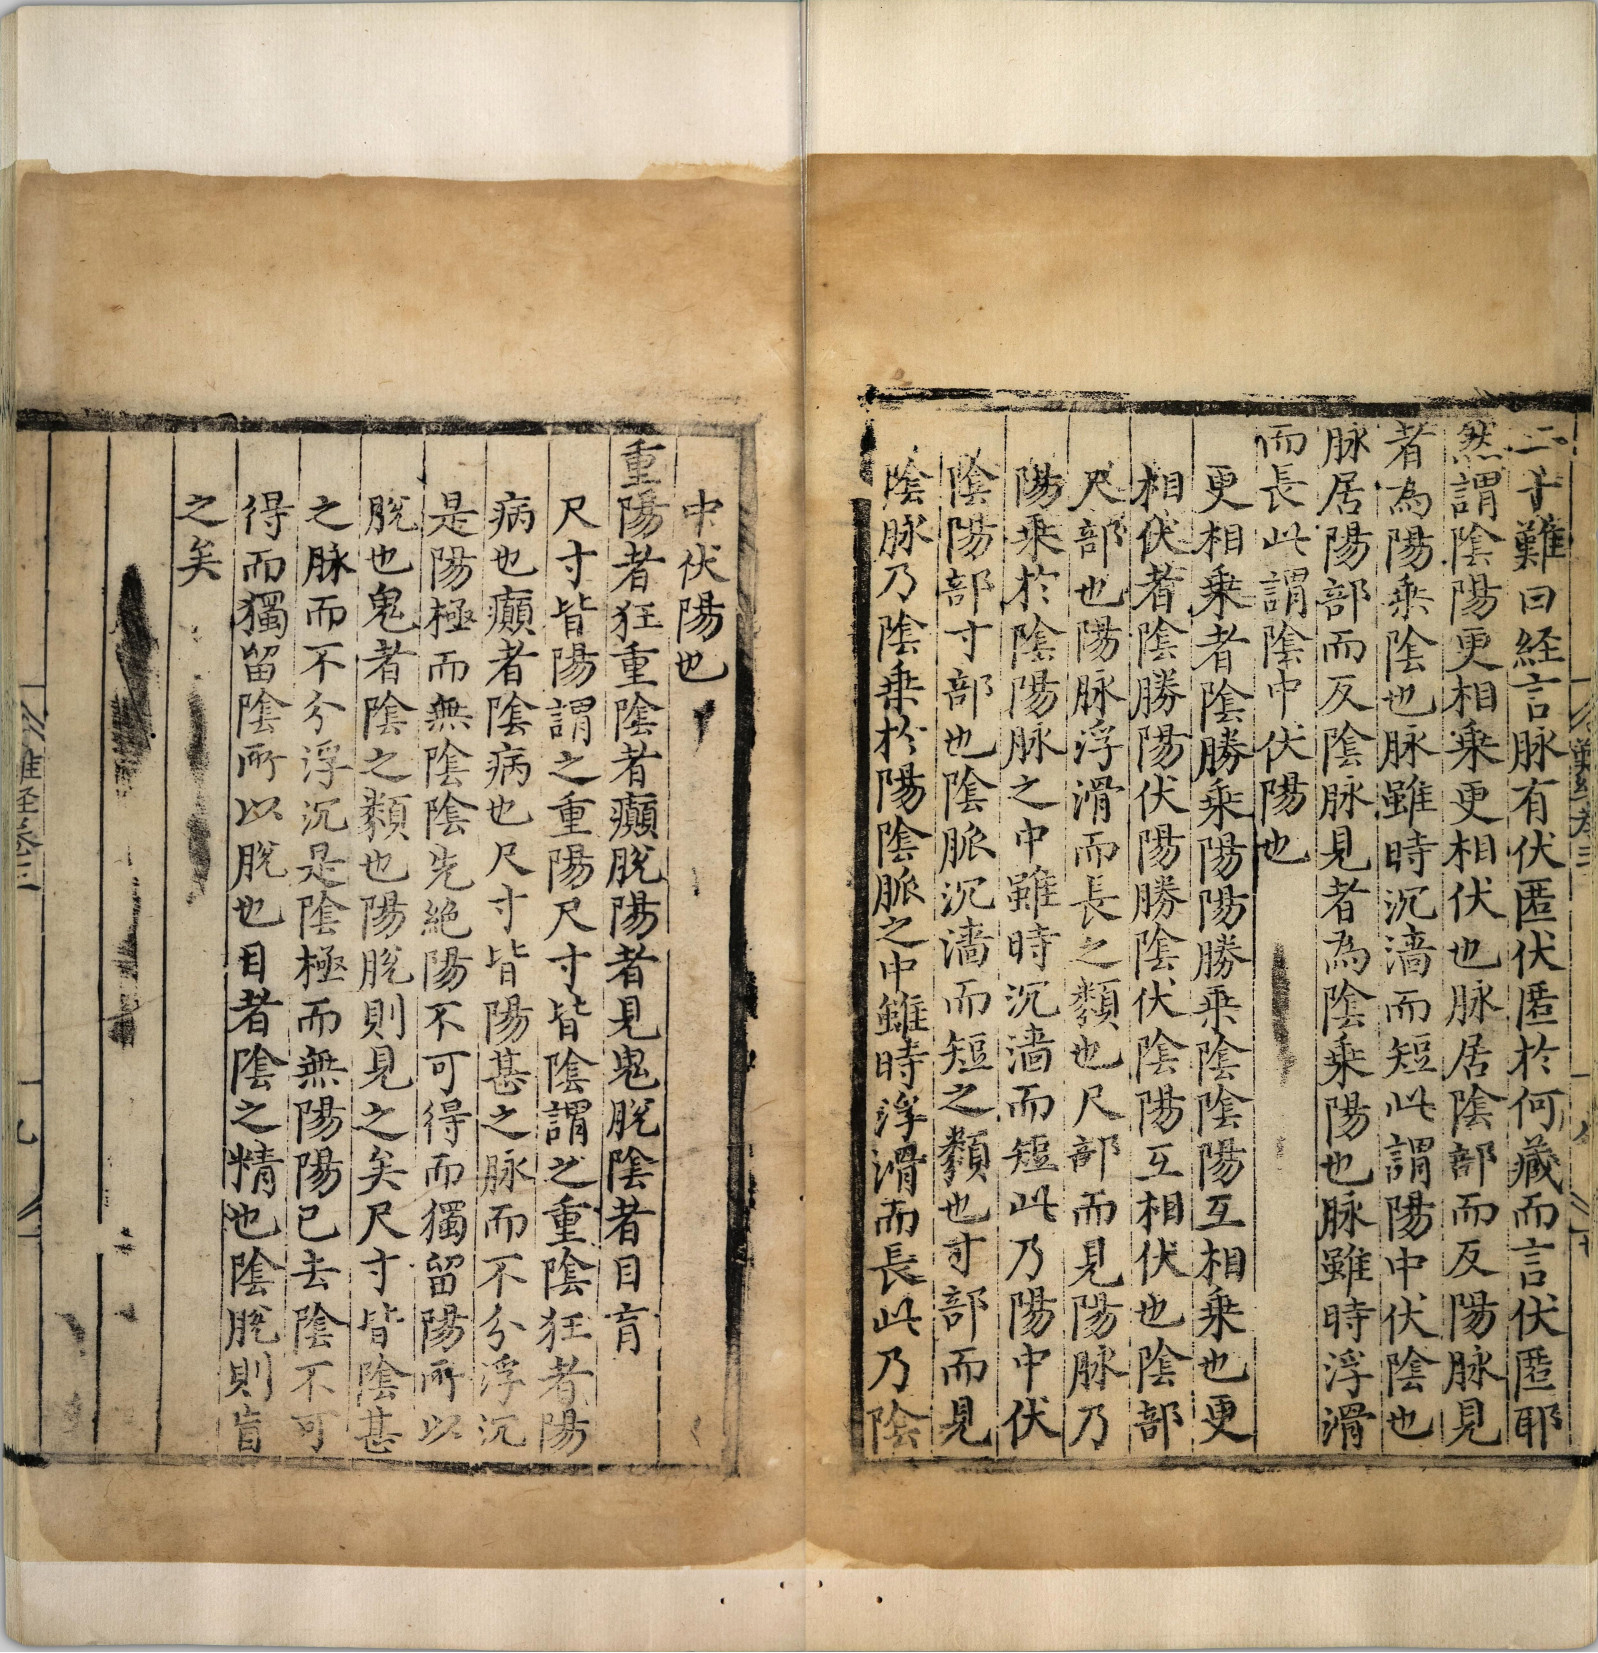 二十難曰経言脉有伏匿伏匿於何藏而言伏匿耶
然謂隂陽更相乗更相伏也脉居隂部而反陽脉見
者為陽乗隂也脉雖時沉濇而短此謂陽中伏隂也
脉居陽部而反隂脉見者為隂乗陽也脉雖時浮滑
而長此謂隂中伏陽也
更相乗者隂勝乗陽陽勝乗隂隂陽互相乗也更
相伏者隂勝陽伏陽陽勝隂伏隂陽互相伏也隂部
尺部也陽脉浮滑而長之𩔖也尺部而見陽脉乃
陽乗於隂陽脉之中雖時沉濇而短此乃陽中伏
隂陽部寸部也隂脈沉濇而短之𩔖也寸部而見
隂脉乃隂乗於陽隂脈之中雖時浮滑而長此乃隂
中伏陽也
重陽者狂重隂者癲脫陽者見鬼脫隂者目盲
尺寸皆陽謂之重陽尺寸皆隂謂之重隂狂者陽
病也癲者隂病也尺寸皆陽甚之脉而不分浮沉
是陽極而無隂隂先絶陽不可得而獨留陽所以
脫也鬼者隂之𩔖也陽脫則見之矣尺寸皆隂甚
之脉而不分浮沉是隂極而無陽陽已去隂不可
得而獨留隂所以脫也目者隂之精也隂脫則盲
之矣